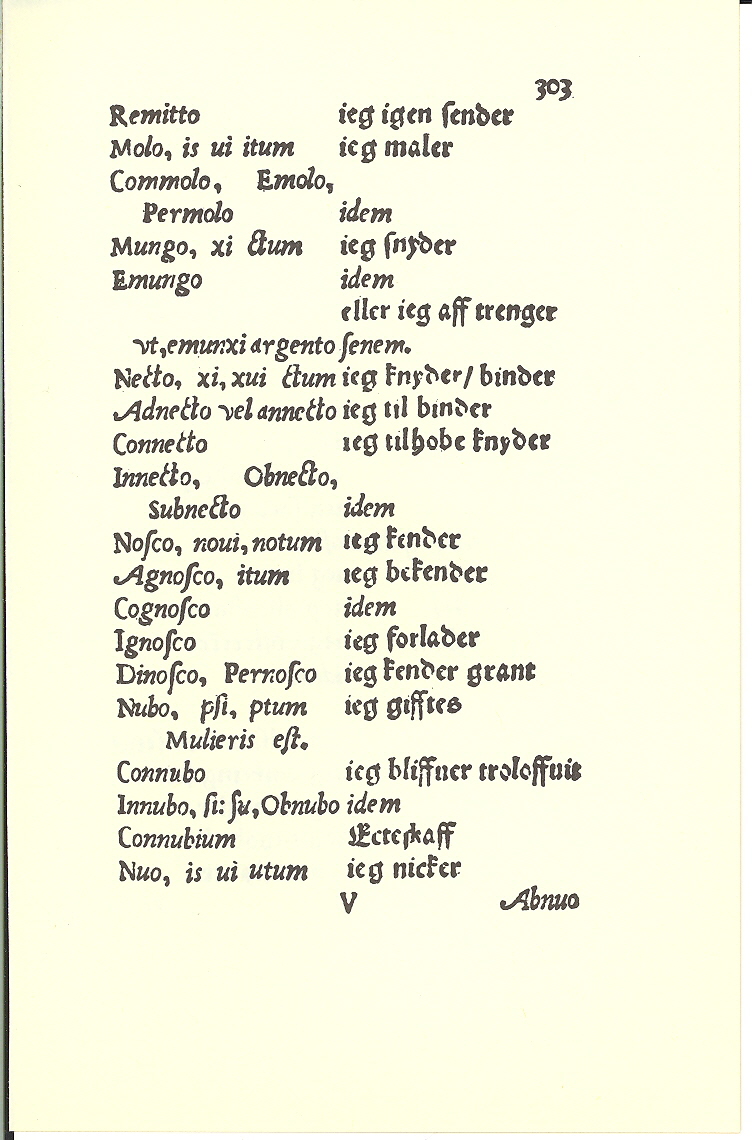 303
Remitto ieg igen ſender
Molo, is ui itum ieg maler
Commolo, Emolo,
Permolo idem
Mungo, xi ctum ieg ſnyder
Emungo idem
eller ieg aff trenger
vt, emunxi argento ſenem.
Necto, xi, xui ctum ieg knyder/ binder
Adnecto vel annecto ieg til binder
Connecto ieg tilhobe knyder
Innecto, Obnecto,
Subnecto idem
Noſco, noui, notum ieg kender
Agnoſco, itum ieg bekender
Cognoſco idem
Ignoſco ieg forlader
Dinoſco, Pernoſco ieg kender grant
Nubo, pſi, ptum ieg gifftes
Mulieris eſt.
Connubo ieg bliffuer troloffuit
Innubo, ſi: ſu, Obnubo idem
Connubium Ecteſkaff
Nuo, is ui utum ieg nicker
V Abnuo